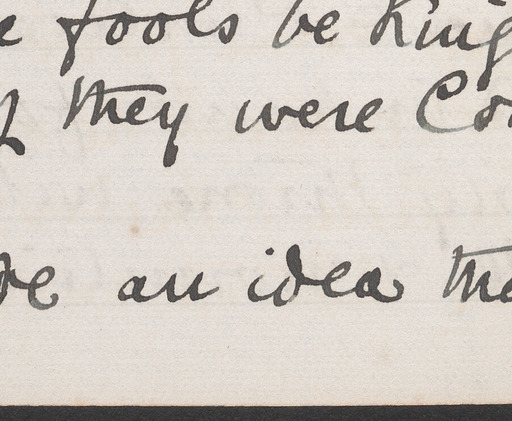 fools be King
they were Co
an idea tha